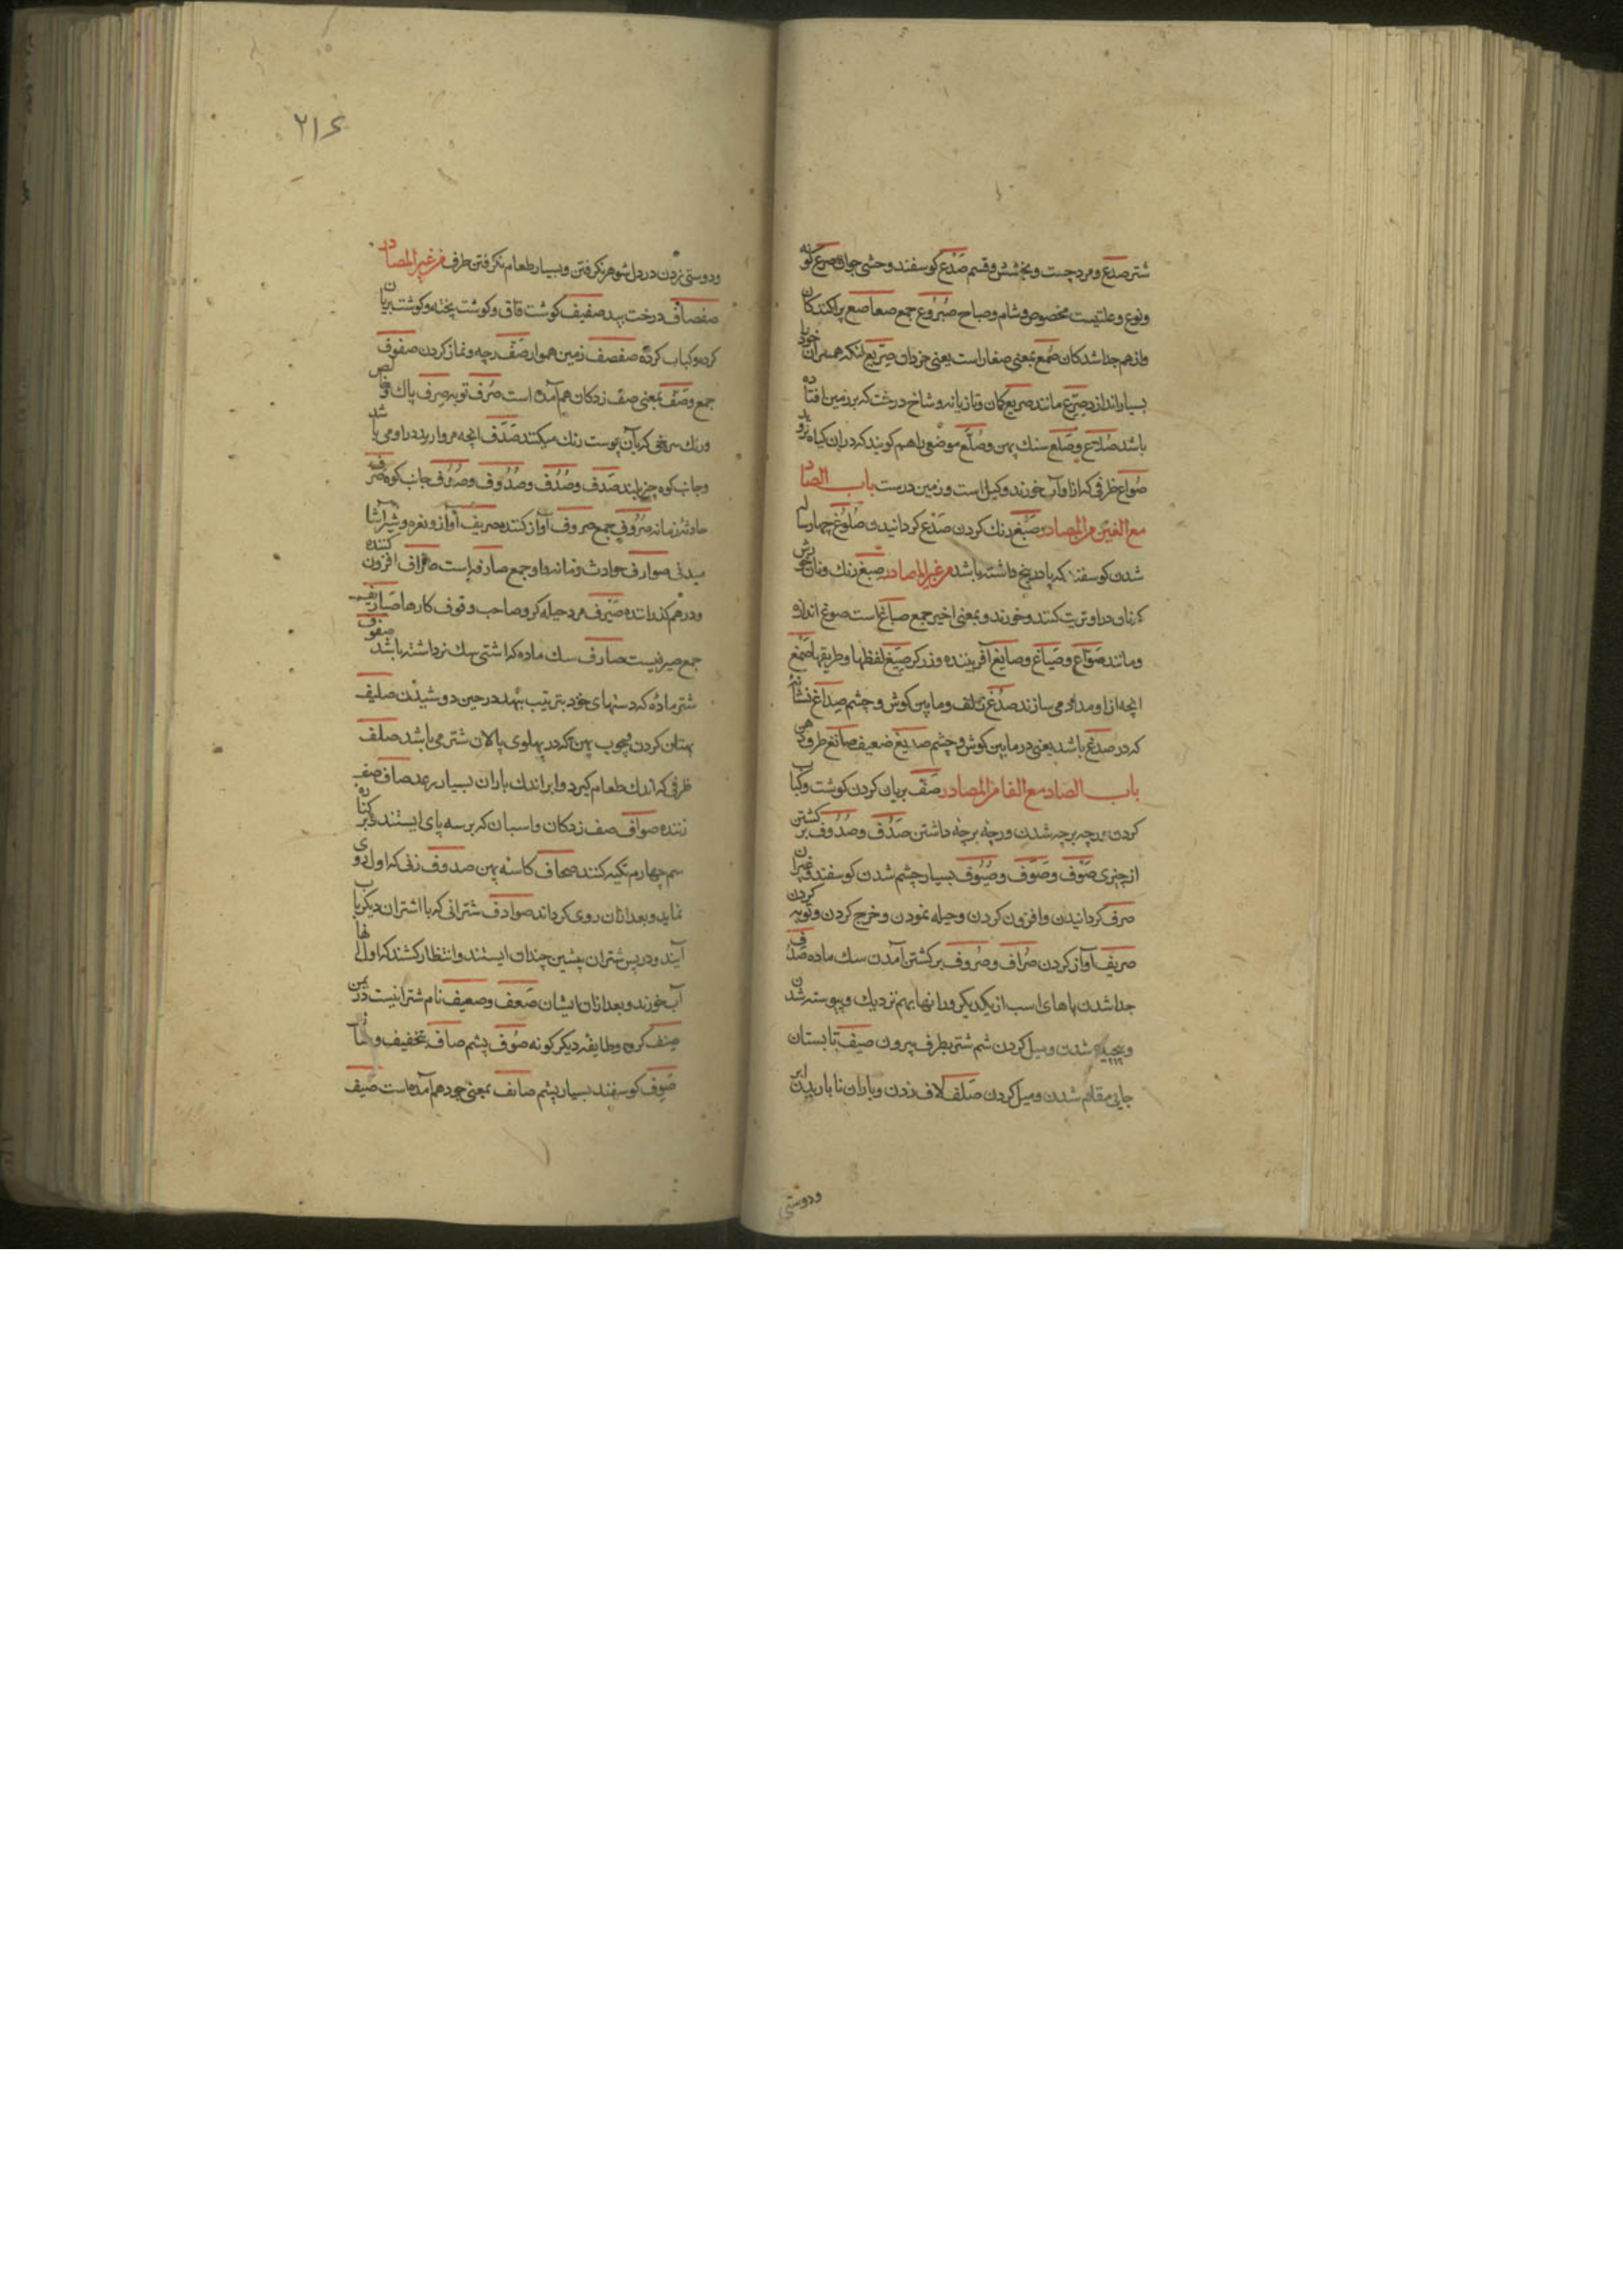 شتر صدع و مرد چست و بخشش و قسم صدع کوسفند وحشی جوان صرع کونه
و نوع و علتیست مخصوص و شام و صباح صروع جمع صعاصع پراکندکان
و از هم جدا شدکان صمع بمعنی صغار است یعنی خردان صریع انکه همسران خود را
بسیار اندازد صریع مانند صریع کمان و تازیانه و شاخ درخت که بر زمین افتاده
باشد صلاع و صلع سنک پهن و صلع موضعی را هم کویند که دران کیاه نروید
صواع ظرفی که ازو آب خورند و کیل است و زمین درست باب الصاد
مع الغین من المصادر صبغ رنک کردن صدغ کردانیدن صلوغ چهار ساله
شدن کوسفند که پا در پنج داشته باشد من غیر المصادر صبغ رنک و نان خورش
که نان در او تریت کنند و خورند و بمعنی اخیر جمع صباغ است صوغ اندازه
و مانند صواغ و صیاغ و صایغ آفریننده و زرکر صیغ لفظها و طریقها صمغ
انچه ازو مداد می سازند صدغ زلف و مابین کوش و چشم صداغ نشانه
که در صدغ باشد یعنی در مابین کوش و چشم صدیغ ضعیف
باب الصاد مع الفا من المصادر صف بریان کردن کوشت و کباب
کردن و رجه برجه شدن و رجه برجه داشتن صدف و صدوف بر کشتن
از چیزی صوف و صوف و صیوف بسیار چشم شدن کوسفند و غیران
صرف کردانیدن و افزون کردن و حیله نمودن و خرج کردن و توبه کردن
صریف آواز کردن صراف و صروف بر کشتن آمدن سک ماده صدف
جدا شدن پاهای اسب از یکدیکر و رانها بهم نزدیک و پیوسته شدن
و پیچیده شدن و میل کردن سم شتر بطرف بیرون صیف تابستان
جایی مقام شدن و میل کردن صلف لاف زدن و باران نا باریدن ابر
ودوستی
۲۱۶
و دوستی زدن در دل شوهر نکرفتن و بسیار طعام نکرفتن ظرف من غیر المصادر
صفصاف درخت بید صفیف کوشت قاق و کوشت پخته و کوشت بریان
کرده و کباب کرده صفصف زمین هموار صف رجه و نماز کردن صفوف
جمع و صف بمعنی صف زدکان هم آمده است صرف توبه صرف پاک و خالص
و رنک سرخی که بآن پوست رنک میکنند صدف انچه مروارید در او می باشد
و جانب کوه چیز بلند صدف و صدف و صدوف و صدف جانب کوه صرف
حادثه زمانه صروف جمع صروف آواز کننده صریف آواز و نقره و شیر
صوارف حوادث زمانه و جمع صارفه است صراف افزون کننده
و درهم کذراننده صیرف مرد حیله کر و صاحب وقوف کارها صیارفه
جمع صیرفیست صارف سک ماده که اشتی سک نر داشته باشد صفوف
شتر ماده که دستهای خود بترتیب نهد در حین دوشیدن صلیف
پهنان کردن و چوب پهن که در پهلوی پالان شتر می باشد صلف
ظرفی که اندک طعام کیرد و ابر اندک باران بسیار رعد صاف صف
زننده صواف صف زدکان و اسبان که بر سه پای ایستند و بر کناره
سم چهارم تکیه کنند صحاف کاسه پهن صدوف زنی که اول روی
نماید و بعد ازان روی کرداند صوادف شترانی که با اشتران دیکر بآب
آیند و در پس شتران پیشین چندان ایستند و انتظار کشند که اول آنها
آب خورند و بعد ازان ایشان صعف و صعیف نام شرابیست در یمن
صنف کروه و طایفه دیکر کونه صوف پشم صاف بتخفیف
صوف کوسفند بسیار پشم صائف بمعنی خود هم آمده است صیف